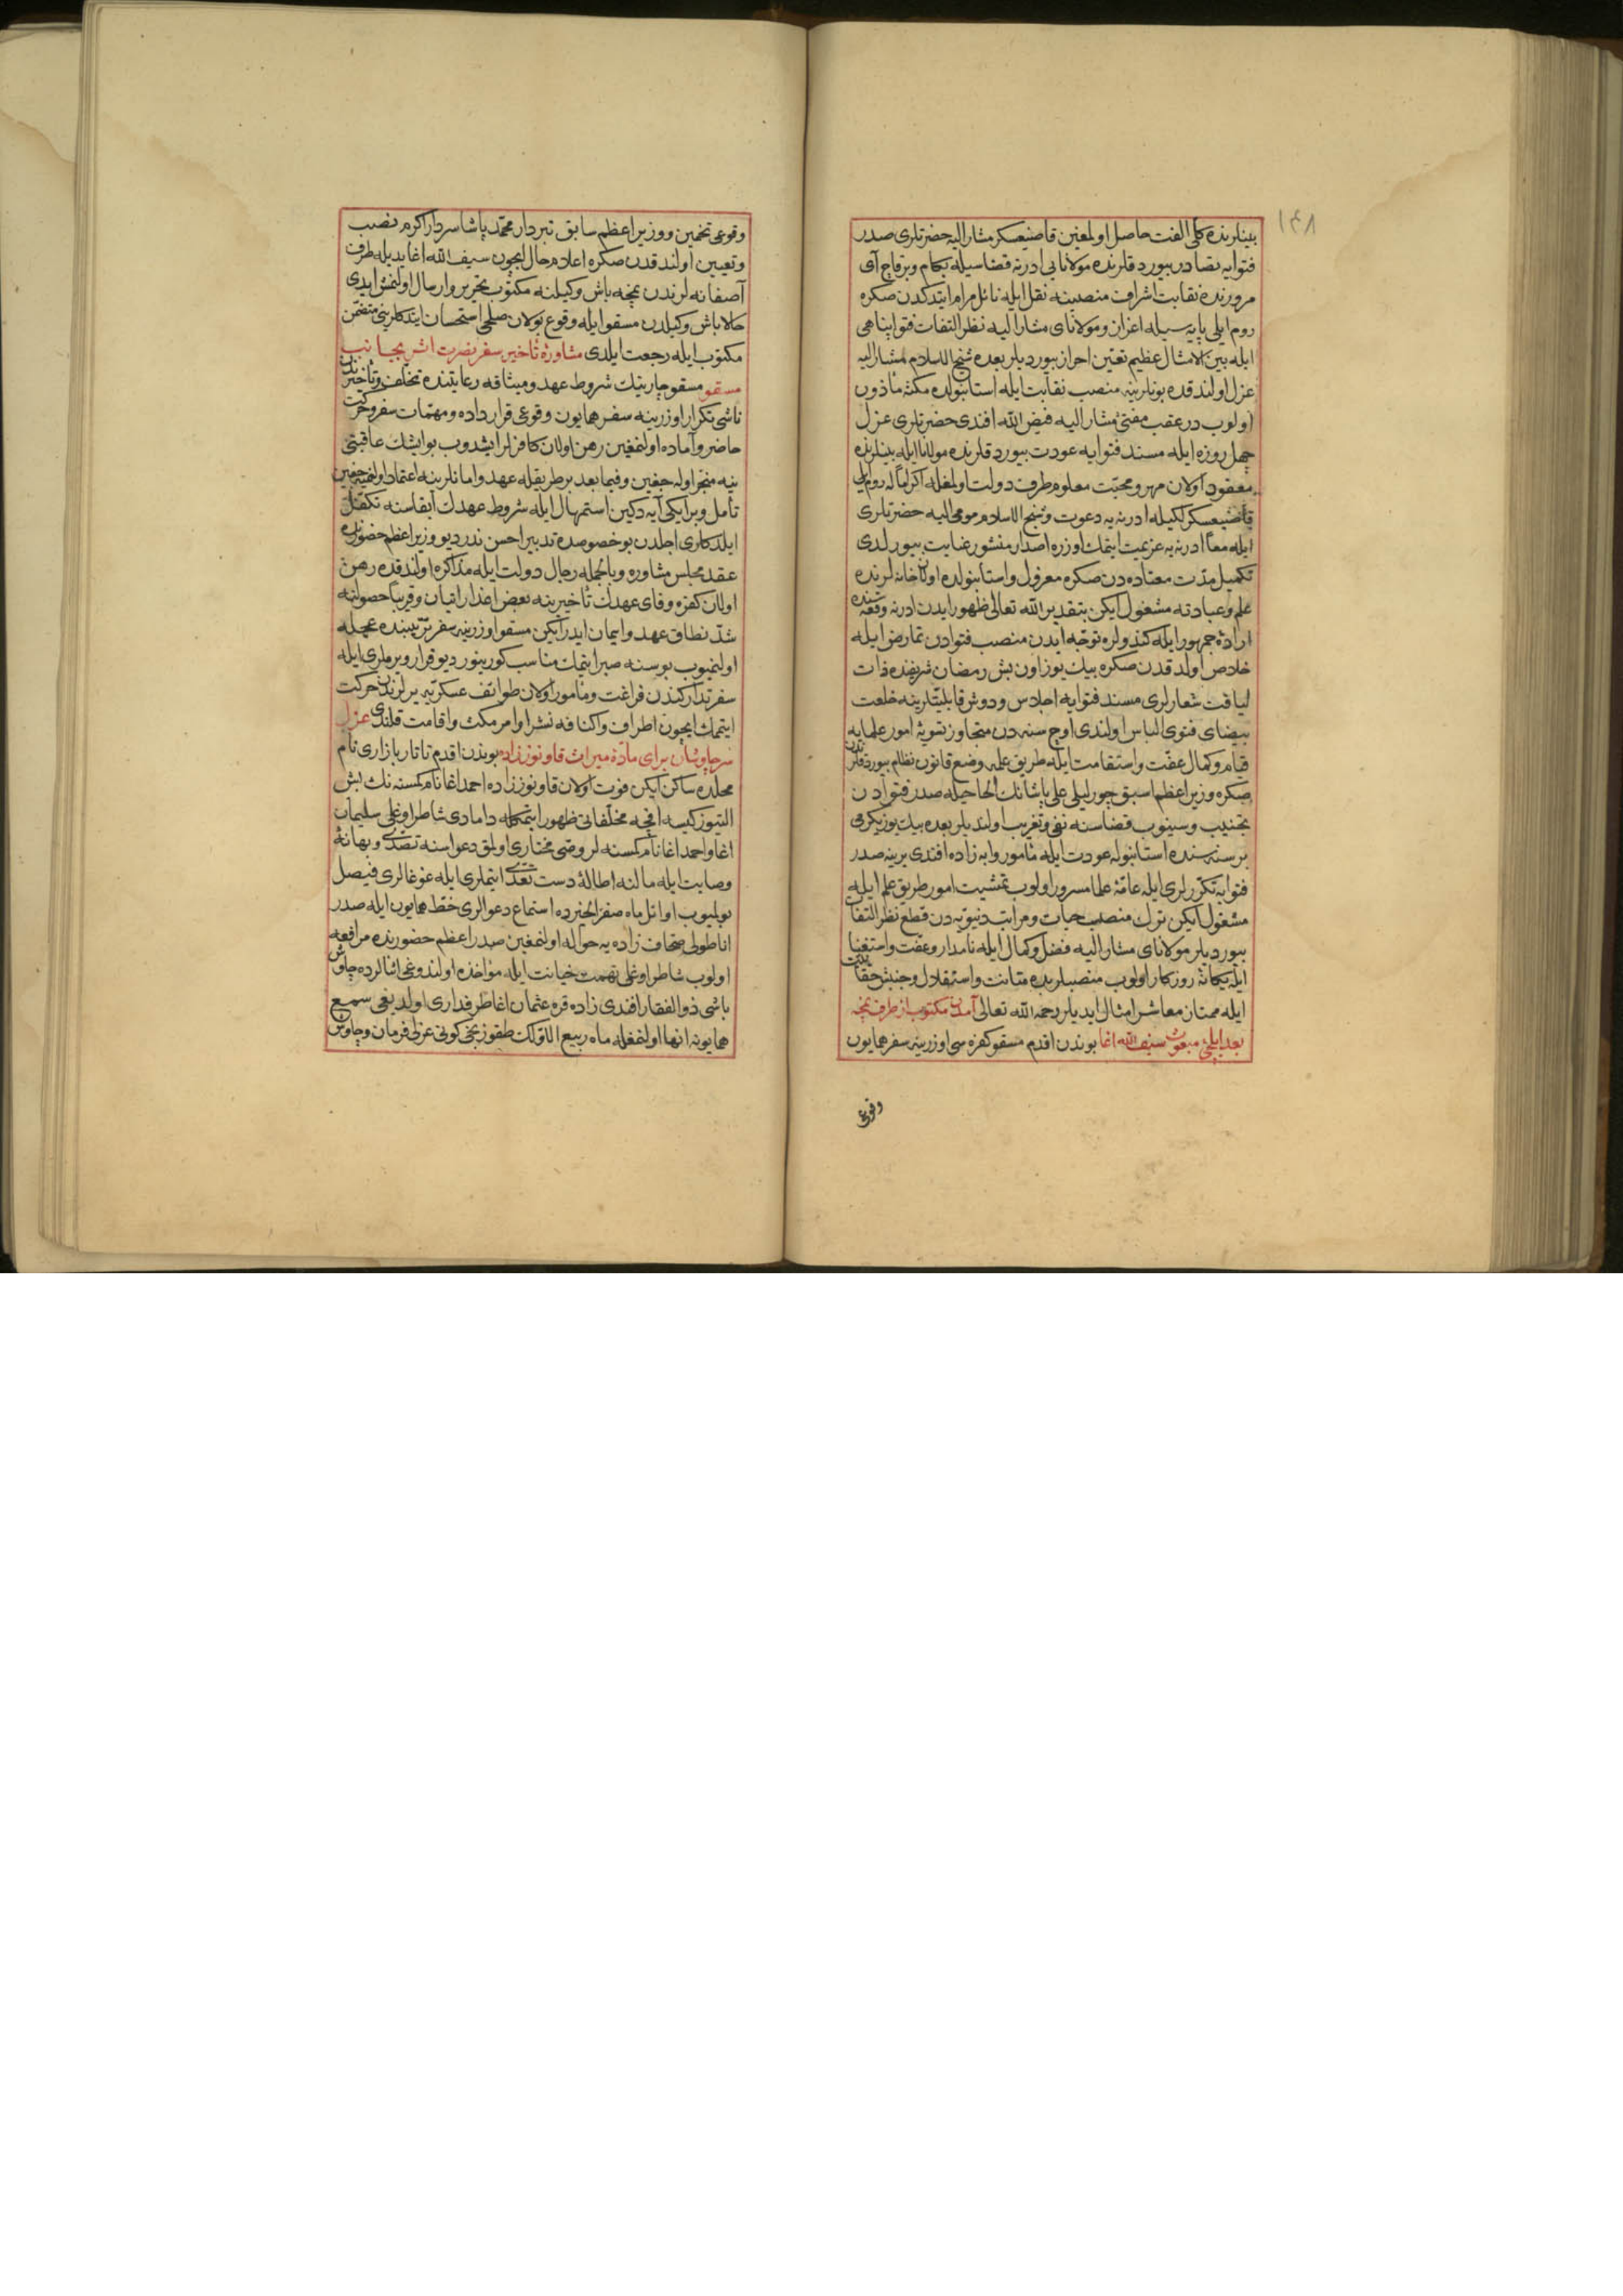 ١٤٨
بينلرنده كلّى الفت حاصل اولمغين قاضيعسكر مشار اليه حضرتلرى صدر
فتوايه تصادر بيوردقلرنده مولانايى ادرنه قضاسيله بكام وبر قاچ آى
مرورنده نقابت اشراف منصبنه نقل ايله نائل مرام ايتدكدن صكره
روم ايلى پايه سيله اعزاز ومولاناى مشار اليه نظر التفات فتواپناهى
ايله بين الامثال عظيم تعيّن احراز بيورديلر بعده شيخ الاسلام مشار اليه
عزل اولندقده بونلرينه منصب نقابت ايله استانبولده مكثه مأذون
اولوب در عقب مفتئ مشار اليه فيض الله افندى حضرتلرى عزل
چهل روزه ايله مسند فتوايه عودت بيوردقلرنده مولانا ايله بينلرنده
معقود اولان مهر ومحبّت معلوم طرف دولت اولمغله اكراماً له روم ايلى
قاضيعسكرلكيله ادرنه يه دعوت وشيخ الاسلام مومى اليه حضرتلرى
ايله معاً ادرنه يه عزيمت ايتمك اوزره اصدار منشور عنايت بيورلدى
تكميل مدّت معتاده دن صكره معزول واستانبولده اولان خانه لرنده
علم وعبادته مشغول ايكن بتقدير الله تعالى ظهور ايدن ادرنه وقعه سنده
اراده جمهور ايله كندولره توجّه ايدن منصب فتوادن تمارض ايله
خلاص اولدقدن صكره بيك يوز اون بش رمضان شريفنده ذات
لياقت شعارلرى مسند فتوايه اجلاس ودوش قابليّتلرينه خلعت
بيضاى فتوى الباس اولندى اوچ سنه دن متجاوز تسويۀ امور علمايه
قيام وكمال عفّت واستقامت ايله طريق علمه وضع قانون نظام بيوردقلرندن
صكره وزير اعظم اسبق چورليلى على پاشانك الحاحيله صدر فتوادن
تجنيب وسينوب قضاسنه نفى وتغريب اولنديلر بعده بيك يوز يكرمى
بر سنه سنده استانبوله عودت ايله مأمور وابه زاده افندى يرينه صدر
فتوايه تكرّرلرى ايله عامّۀ علما مسرور اولوب تمشيت امور طريق علم ايله
مشغول ايكن ترك منصب حيات ومراتب دنيويّه دن قطع نظر التفات
بيورديلر مولاناى مشار اليه فضل وكمال ايله نامدار وعفّت واستغنا
ايله يكانۀ روزكار اولوب منصبلرنده متانت واستقلال وجنبش حقّانيّت
ايله ممتاز معاشر امثال ايديلر رحمه الله تعالى آمدن مكتوب از طرف نمچه
بعد ايلچئ مبعوث سيف الله اغا بوندن اقدم مسقو كفره سى اوزرينه سفر همايون
وقوعى
وقوعى تخمين ووزير اعظم سابق تبردار محمّد پاشا سردار اكرم نصب
وتعيين اولندقدن صكره اعلام حال ايچون سيف الله اغا يديله طرف
آصفانه لرندن نمچه باش وكيلنه مكتوب تحرير وارسال اولنمش ايدى
حالا باش وكيلدن مسقو ايله وقوع بولان صلحى استحسان ايتدكلرينى متضمّن
مكتوب ايله رجعت ايلدى مشاورۀ تأخير سفر نصرت اثر بجانب
مسقو مسقو چارينك شروط عهد وميثاقه رعايتنده تخلّف وتأخيرندن
ناشى تكرار اوزرينه سفر همايون وقوعى قرارداده ومهمّات سفر وحركت
حاضر وآماده اولنمغين رهن اولان كافرلر ايشدوب بو ايشك عاقبتى
نيه منجر اوله جغين وفيما بعد بر طريقله عهد وامانلرينه اعتماد اولنميه جغين
تأمل وبر ايكى آيه دكين استمهال ايله شروط عهدك ابقاسنه تكفّل
ايلدكلرى اجلدن بو خصوصده تدبير احسن ندر ديو وزير اعظم حضورنده
عقد مجلس مشاوره وبالجمله رجال دولت ايله مذاكره اولندقده رهن
اولان كفره وفاى عهدك تأخيرينه بعض اعذار اتيان وقريباً حصولنه
شدّ نطاق عهد وايمان ايدر ايكن مسقو اوزرينه سفر ترتيبنده عجله
اولنميوب بو سنه صبر ايتمك مناسب كورينور ديو قرار ويرملرى ايله
سفر تداركندن فراغت ومأمور اولان طوائف عسكريّه يرلرندن حركت
ايتمامك ايچون اطراف واكنافه نشر اوامر مكث واقامت قلندى عزل
سر چاوشان براى مادّۀ ميراث قاونوززاده بوندن اقدم تاتار بازارى نام
محلده ساكن ايكن فوت اولان قاونوززاده احمد اغا نام كمسنه نك بش
التيوز كيسه اقچه مخلّفاتى ظهور ايتمكله دامادى شاطر اوغلى سليمان
اغا واحمد اغا نام كمسنه لر وصئ مختارى اولمق دعواسنه تصدّى وبهانۀ
وصايت ايله مالنه اطالۀ دست تعدّى ايتملرى ايله غوغالرى فيصل
بولميوب اوائل ماه صفر الخيرده استماع دعوالرى خطّ همايون ايله صدر
اناطولى صحّاف زاده يه حواله اولنمغين صدر اعظم حضورنده مرافعه
اولوب شاطر اوغلى تهمت خيانت ايله مؤاخذه اولندوغى اثنالرده چاوش
باشى ذو الفقار افندى زاده قره عثمان اغا طرفدارى اولديغى سمع
همايونه انها اولنمغله ماه ربيع الاوّلك طقوزنجى كونى عزلى فرمان وچاوش